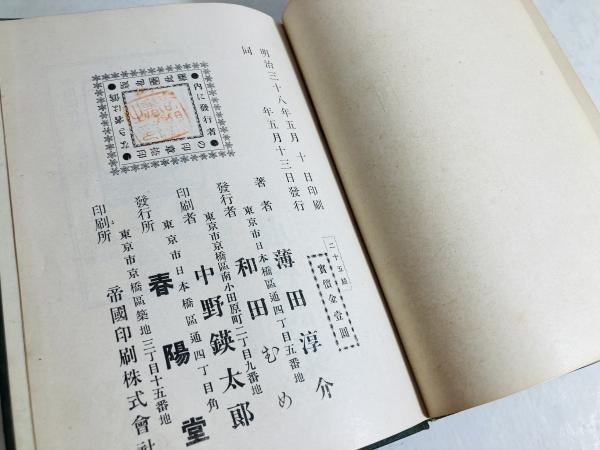 明治三十八年五月 十 日印刷
同 年五月十三日發行
二十五絃
實價金壹圓
著者 薄田淳介
東京市日本橋區通四丁目五番地
發行者 和田むめ
東京市京橋區南小田原町二丁目九番地
印刷者 中野鍈太郎
東京市日本橋區通四丁目角
發行所 春陽堂
東京市京橋區築地三丁目十五番地
印刷所 帝國印刷株式會社
內に發行者の